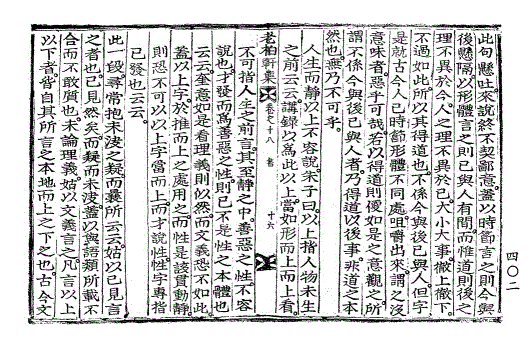 此句懸吐來說終不契鄙意蓋以時節言之則今與
後懸隔以形體言之則己與人有間而惟道則後之
理不異於今人之理不異於己大小大事徹上徹下
不過如此所以其得道也不係今與後己與人但字
是就古今人己時節形體不同處咀嚼出來謂之沒
意味者惡乎可哉若以得道則優如是之意觀之所
謂不係今與後己與人者乃得道以後事非道之本
然也無乃不可乎
人生而靜以上不容說朱子曰以上指人物未生
之前云云講錄以爲此以上當如形而上而上看
老柏軒集 卷之十八 書 十六
不可指人生之前言其至靜之中善惡之性不容
說也才發而爲善惡之性則已不是性之本體也
云云奎意如是看理義則似然而文義恐不如此
蓋以上字於推而上之處用之而性是該貫動靜
則恐不可以以上字當而上而才說性性字專指
已發也云云
此一段尋常抱未決之疑而曩所云云姑以己見言
之者也己見然矣而疑而未決蓋以與語類所識不
合而不敢質也未論理義姑以文義言之凡言以上
以下者皆自其所言之本地而上之下之也古今文
四〇二